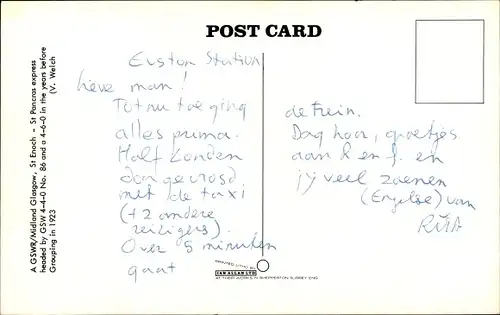 POST CARD
A GSWR/Midland Glasgow, St Enoch – St Pancras express
headed by GSW 4–4–0 No. 86 and a 4–6–0 in the years before
Grouping in 1923 (V. Welch
Euston Station
lieve man!
Tot nu toe ging
alles prima.
Half Londen
door gecrosd
met de taxi
(+ 2 andere
reizigers).
Over 5 minuten
gaat
de trein.
Dag hoor, groetjes
aan R en f. en
jij veel zoenen
(Engelse) van
RITA
PRINTED LITHO BY
IAN ALLAN LTD
AT THEIR WORKS IN SHEPPERTON SURREY ENG